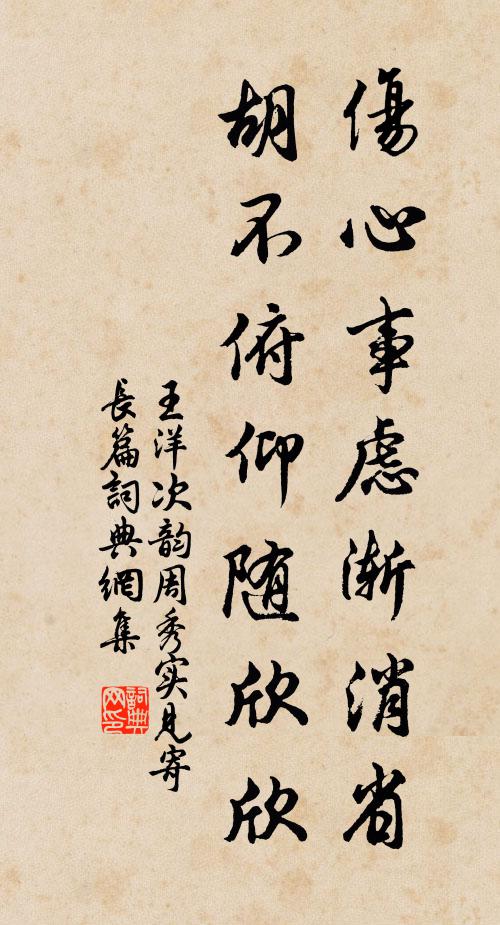 傷心事慮漸消省
胡不俯仰随欣欣
王洋次韵周秀实見寄
長篇詞典網集
詞典网印